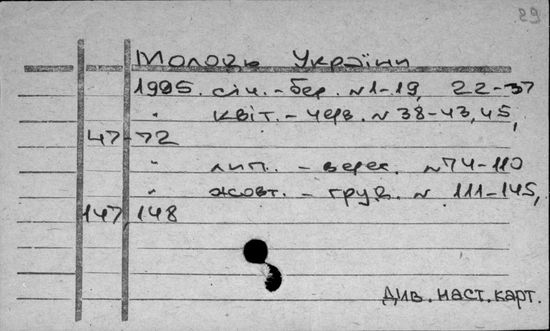 29
Молодь України
1995. січ.-бер. N 1-19, 22-37
" квіт.-черв. N 38-43, 45,
47-72
" лип. - верес. N 74-110
" жовт. - груд. N 111-145,
147, 148
див. наст. карт.